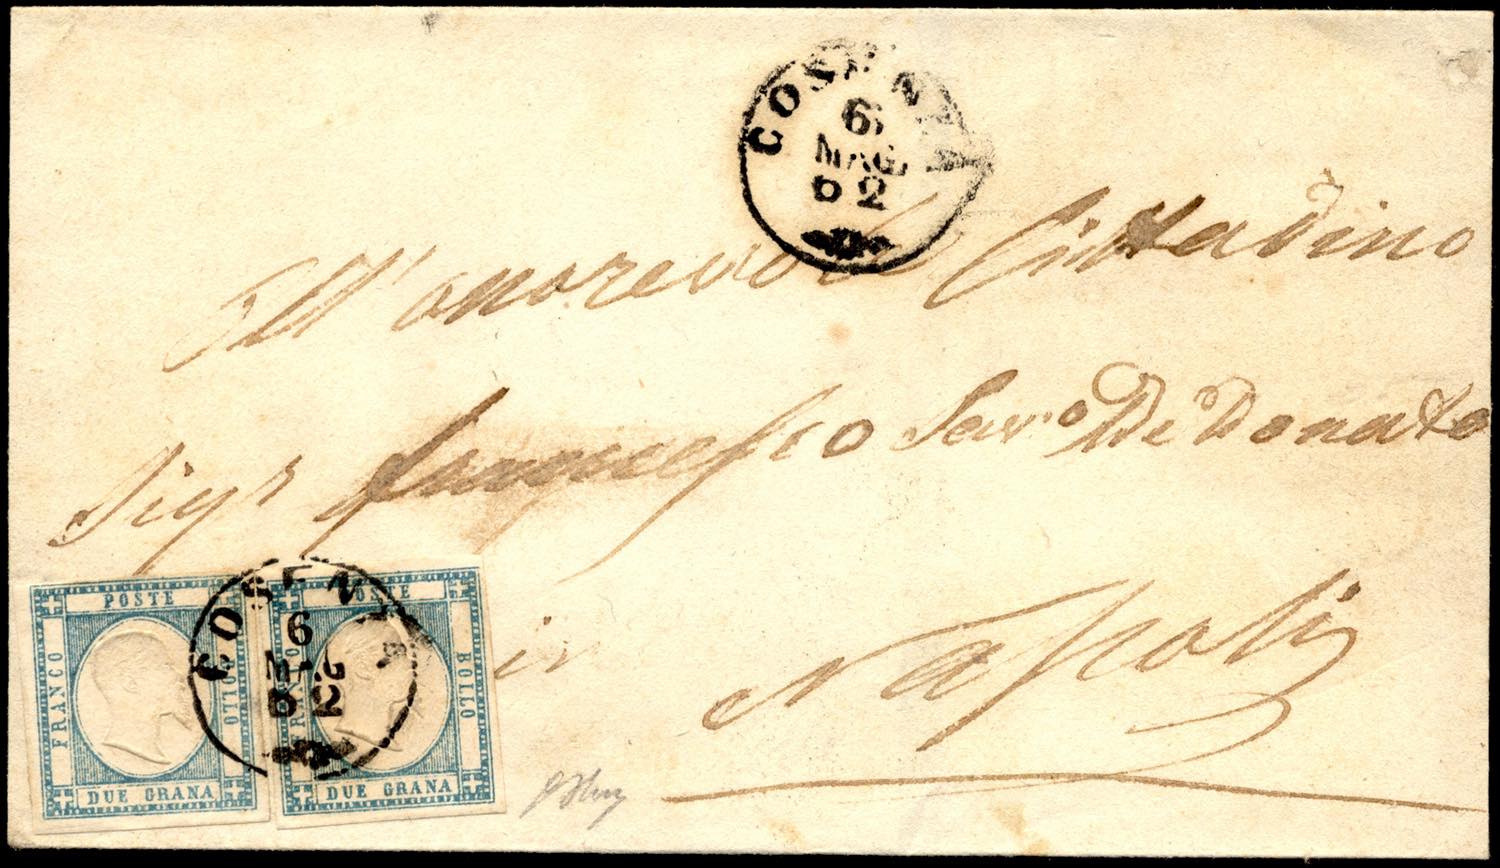 COSENZA
6
MAG
62
All'onorevole Cittadino
Sigr Francesco Savo De Donato
in
Napoli
POSTE
FRANCO
BOLLO
DUE GRANA
POSTE
FRANCO
BOLLO
DUE GRANA
COSENZA
6
MAG
62